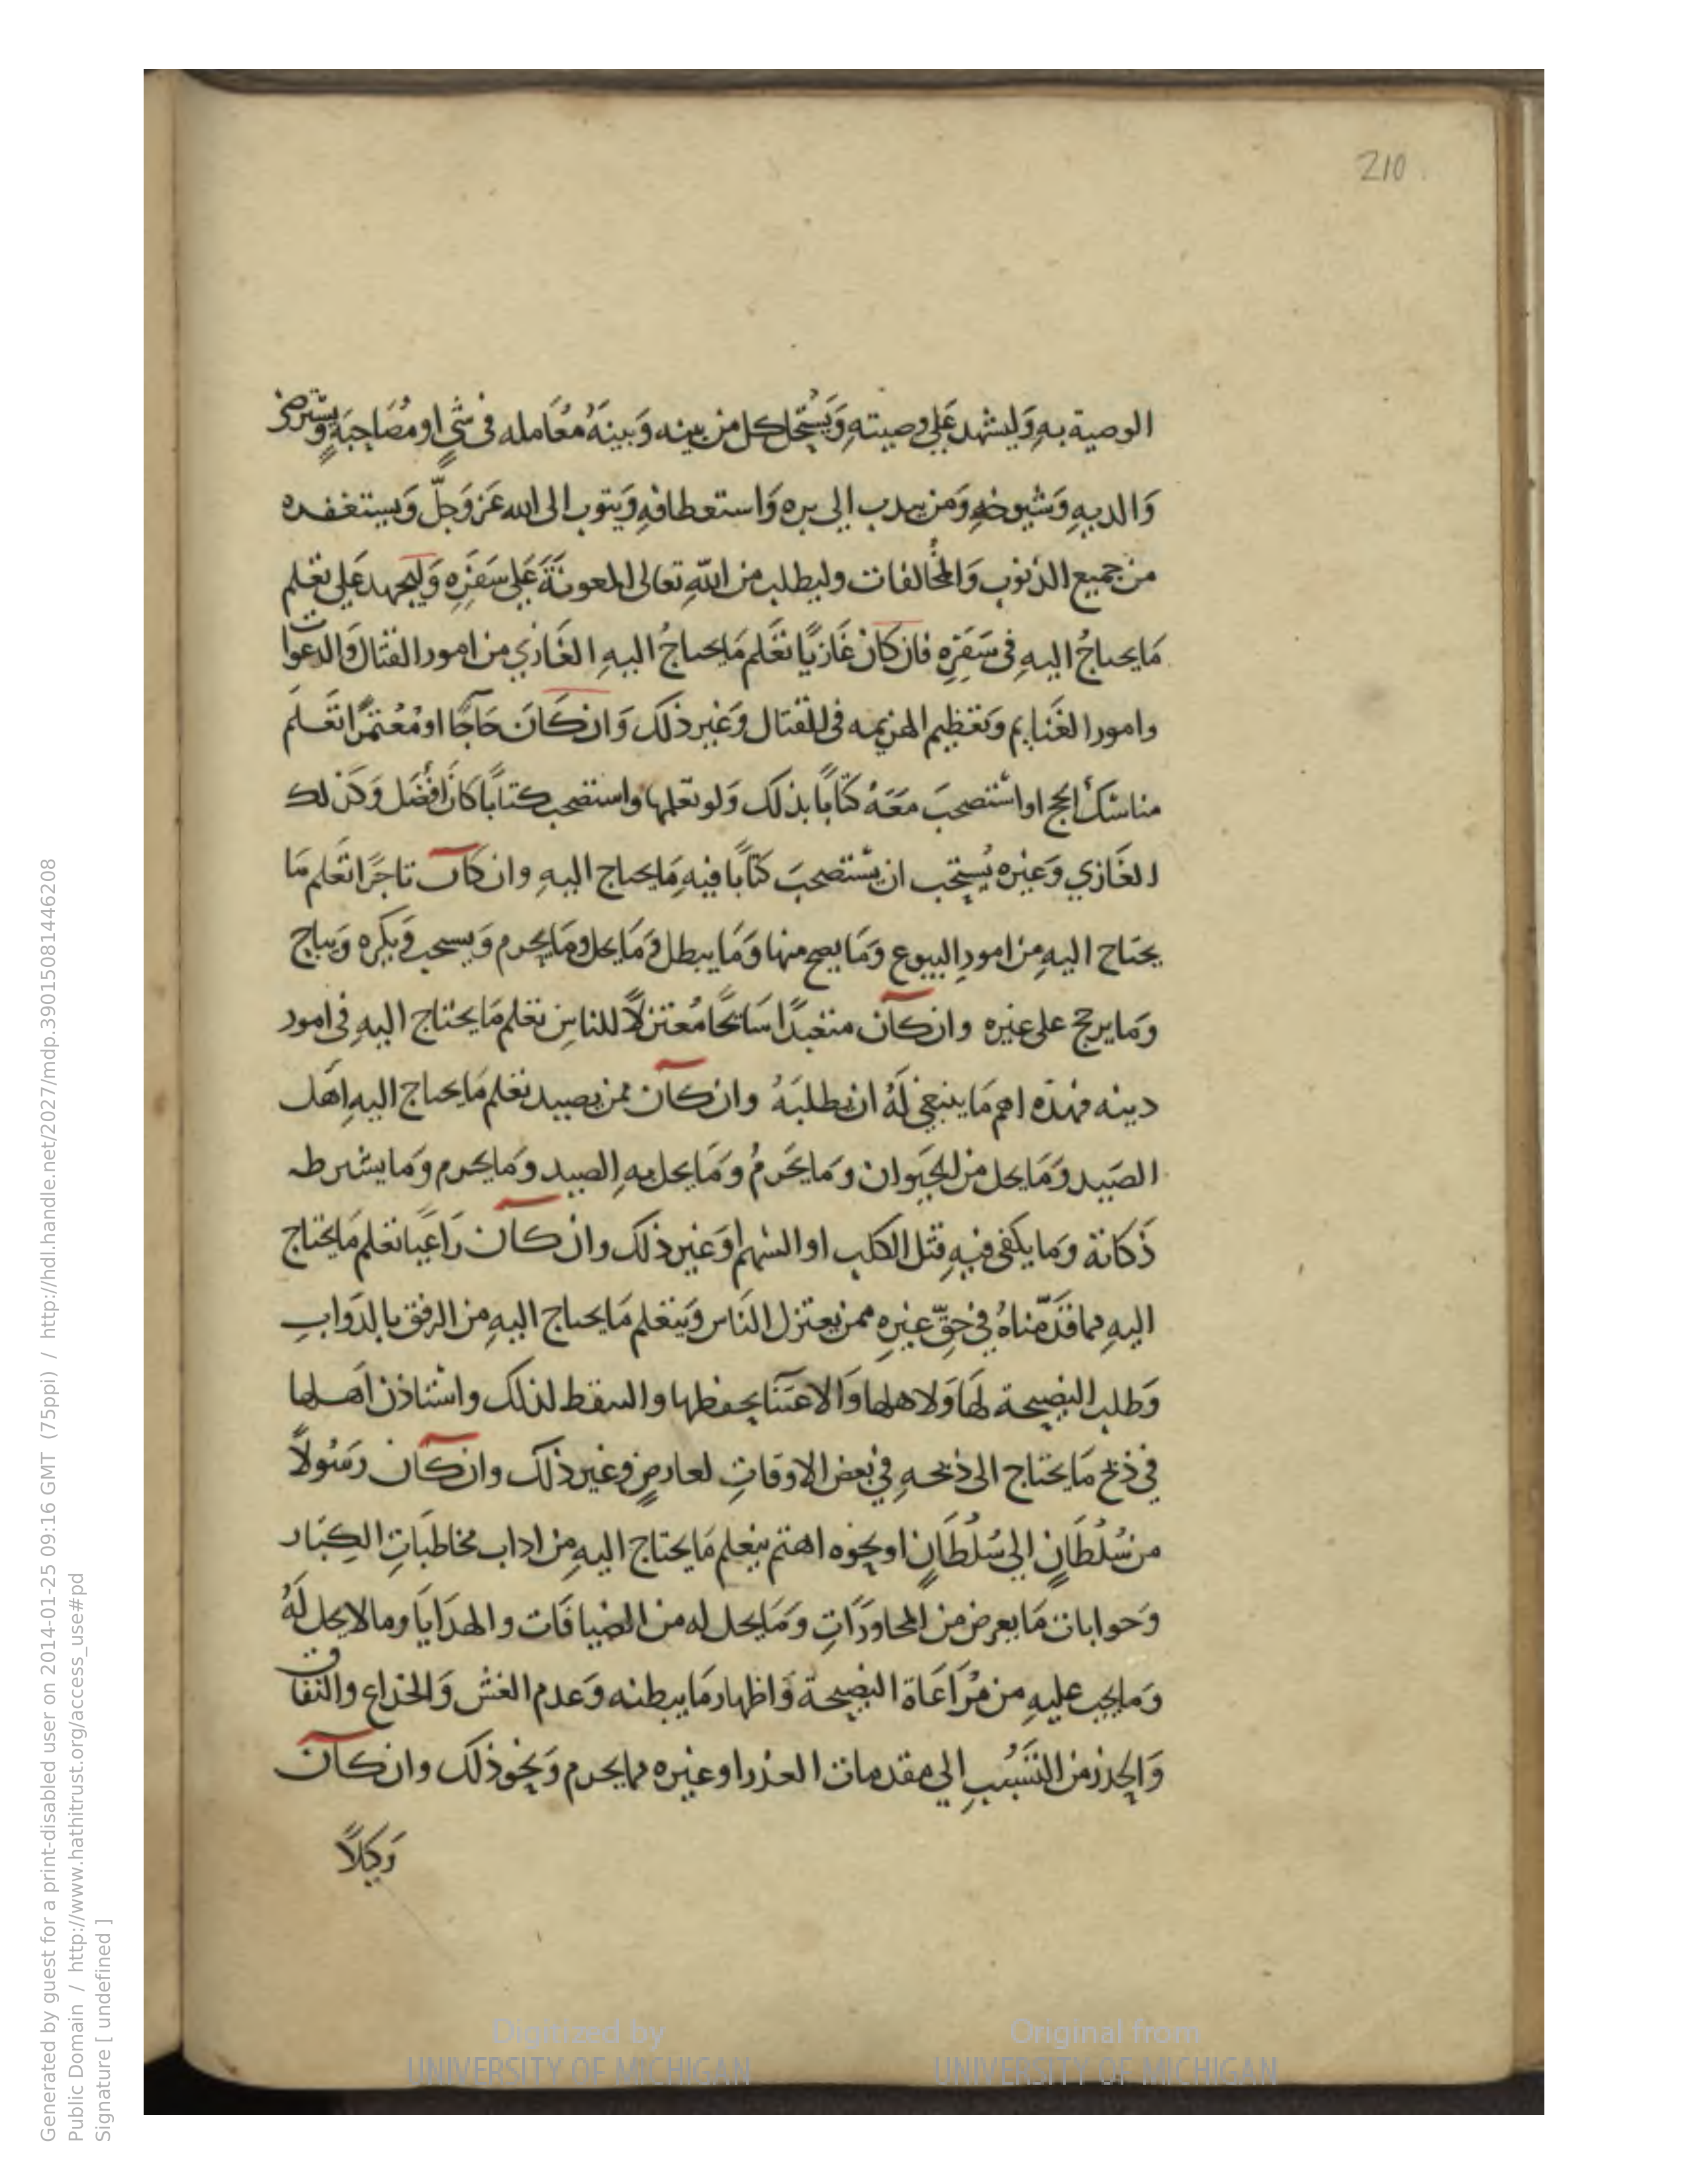 210
الوصية به وَليشهد عَلى وصيته وَيَسْتحل كل من بينه وَبينَهُ مُعَامله فى شَيٍ او مُصَاحِبَةٍ وَيسْترضى
وَالديهِ وَشيوخهِ وَمن يندب الى بره وَاستعطافهِ وَيتوب الى الله عَزوَجلّ وَيستغفره
من جميع الذنوب وَالمخَالفات وليطلب من اللّهِ تعالى المعونَةَ عَلى سَفَرِهِ وَليجهد عَلى تعَلم
مَا يحتاجُ اليهِ فى سَفَرِهِ فان كَان غَازيًا تعَلم مَا يحتاجُ اليهِ الغَازي من امور القتال وَالدعوات
وامور الغَنايم وَتعَظيم الهزيمه فى القتال وَغَير ذلك وَان كَانَ حَاجًا او مُعْتمرًا تَعَلمَ
مناسكَ الحج او اسْتصحبَ مَعَهُ كتَابًا بذلك وَلو تعَلمها واستصحب كتابًا كانَ افضَل وَكذلك
الغَازي وَغيره يُستحَب ان يسْتصحبَ كتابًا فيهِ مَا يحتاج اليهِ وان كان تاجرًا تعَلم مَا
يحتاج اليهِ من امورِ البيوع وَمَا يصح منها وَمَا يبطل وَمَا يحل وَمَا يحرم وَيستحب وَيكره وَيباح
وَما يرجح على غيره وان كآن متعَبدًا سَائحًا مُعتزلًا للناسِ تعَلم مَا يحتاج اليهِ فى امور
دينه فهذه اهم مَا ينبغي لَهُ ان يطلبَهُ وان كآن ممن يصيد تعَلم مَا يحتاج اليهِ اهَل
الصَيد وَمَا يحل من الحيَوان وَمَا يحَرمُ وَمَا يحل بهِ الصيد وَمَا يحرم وَما يشترط
ذَكاتة وَما يكفى فيهِ قتل الكلب او السَهم اوَغير ذلك وان كآن رَاعيًا تعَلم مَا يحتاج
اليهِ مما قَدّمناهُ فى حقِّ غيرِهِ ممن يعتزل الناس وَيتعَلم مَا يحتاج اليهِ من الرفق بالدَوابِ
وَطلب النصِيحة لهَا وَلاهلها وَالاعتنَا بحفظها والسقط لذلك واستاذن اهَلها
في ذبح مَا يحتاج الى ذبحهِ في بعَض الاوقاتِ لعارضٍ وغَير ذلك وان كآن رَسُولاً
من سُلْطَانٍ الى سُلْطَانٍ او نحوه اهتم بتعلم مَا يحتاج اليهِ من اداب مخاطبَاتِ الكِبَار
وَجوابات مَا يعرض من المحاورَاتِ وَمَا يحل له من الضيافَات والهدَايَا وما لا يحل لَهُ
وَما يجب عليهِ من مُرَاعَاة النصِيحة وَاظهار مَا يبطنه وَعدم الغش وَالخداع والنفاق
وَالحذر من التسَبُبِ الى مقدمات الغدر او غيره مما يحرم وَنحو ذلك وان كآن
وَكيلاً
Generated by guest for a print-disabled user on 2014-01-25 09:16 GMT (75ppi) / http://hdl.handle.net/2027/mdp.39015081446208
Public Domain / http://www.hathitrust.org/access_use#pd
Signature [ undefined ]
Digitized by
UNIVERSITY OF MICHIGAN
Original from
UNIVERSITY OF MICHIGAN